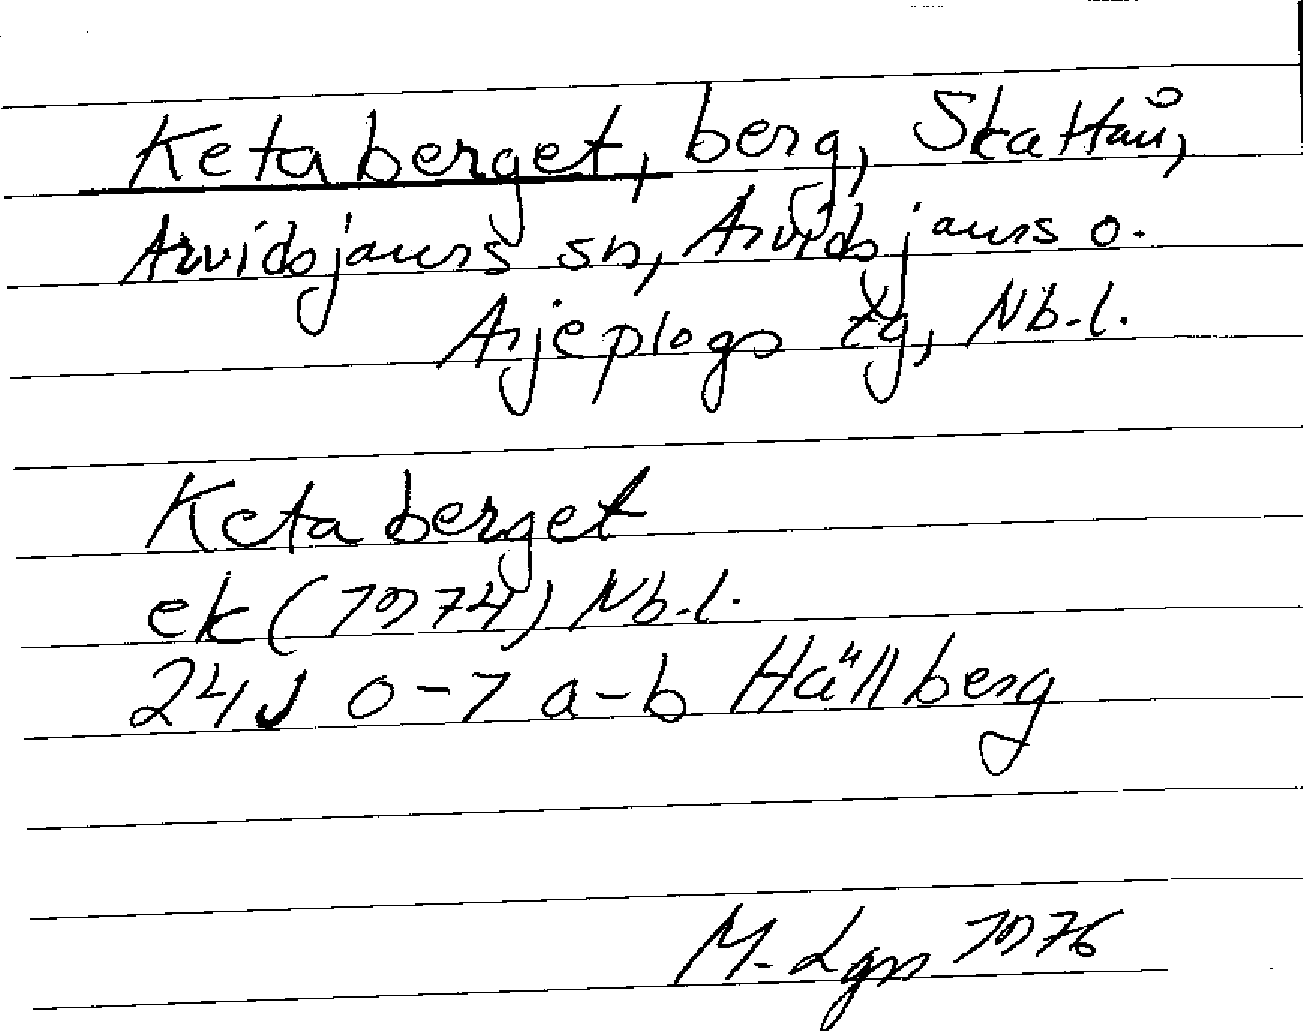 Ketaberget, berg, Skatträn,
Arvidsjaurs sn, Arvidsjaurs o.
Arjeplogs tg, Nb.l.
Ketaberget
ek (1974) Nb.l.
24J 0-1 a-b Hällberg
M. Lgn 1976